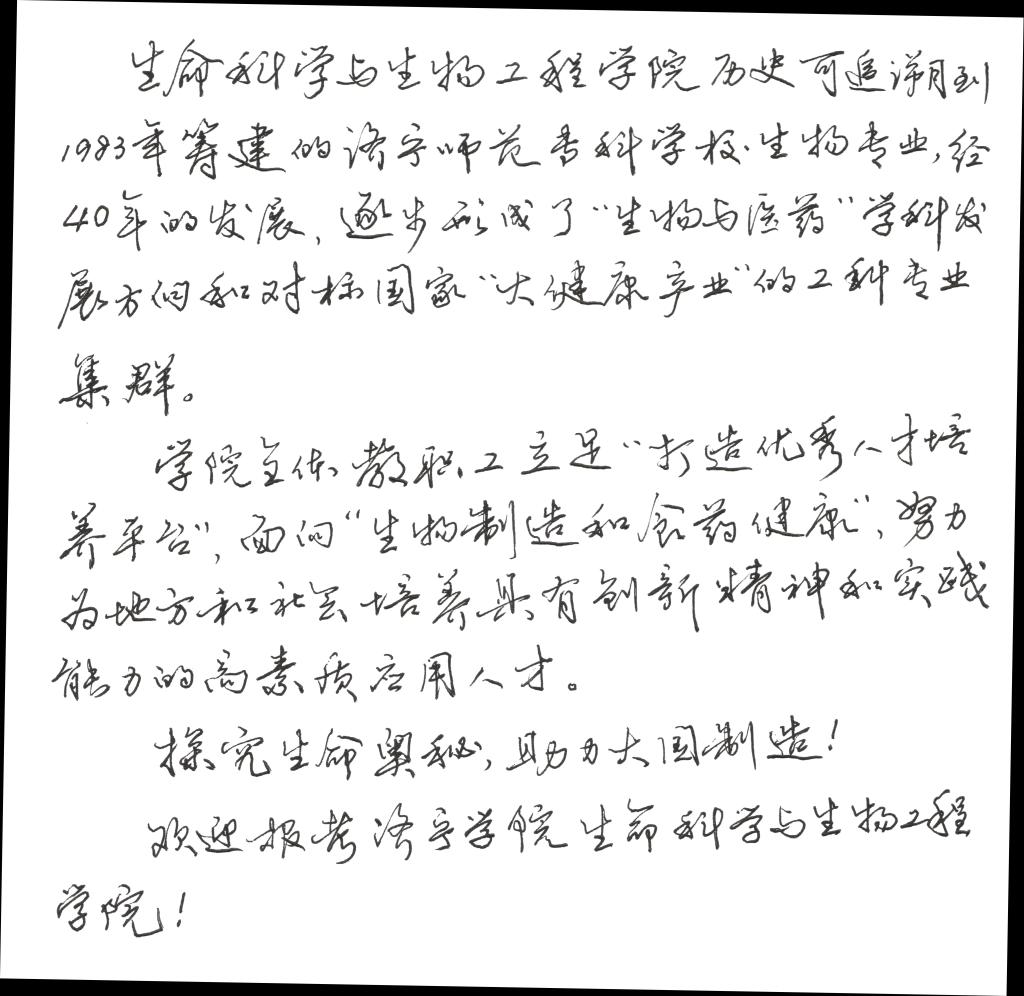 生命科学与生物工程学院历史可追溯到
1983年筹建的济宁师范专科学校生物专业,经
40年的发展,逐步形成了“生物与医药”学科发
展方向和对标国家“大健康产业”的工科专业
集群。
学院全体教职工立足“打造优秀人才培
养平台”,面向“生物制造和食药健康”,努力
为地方和社会培养具有创新精神和实践
能力的高素质应用人才。
探究生命奥秘,助力大国制造!
欢迎报考济宁学院生命科学与生物工程
学院!